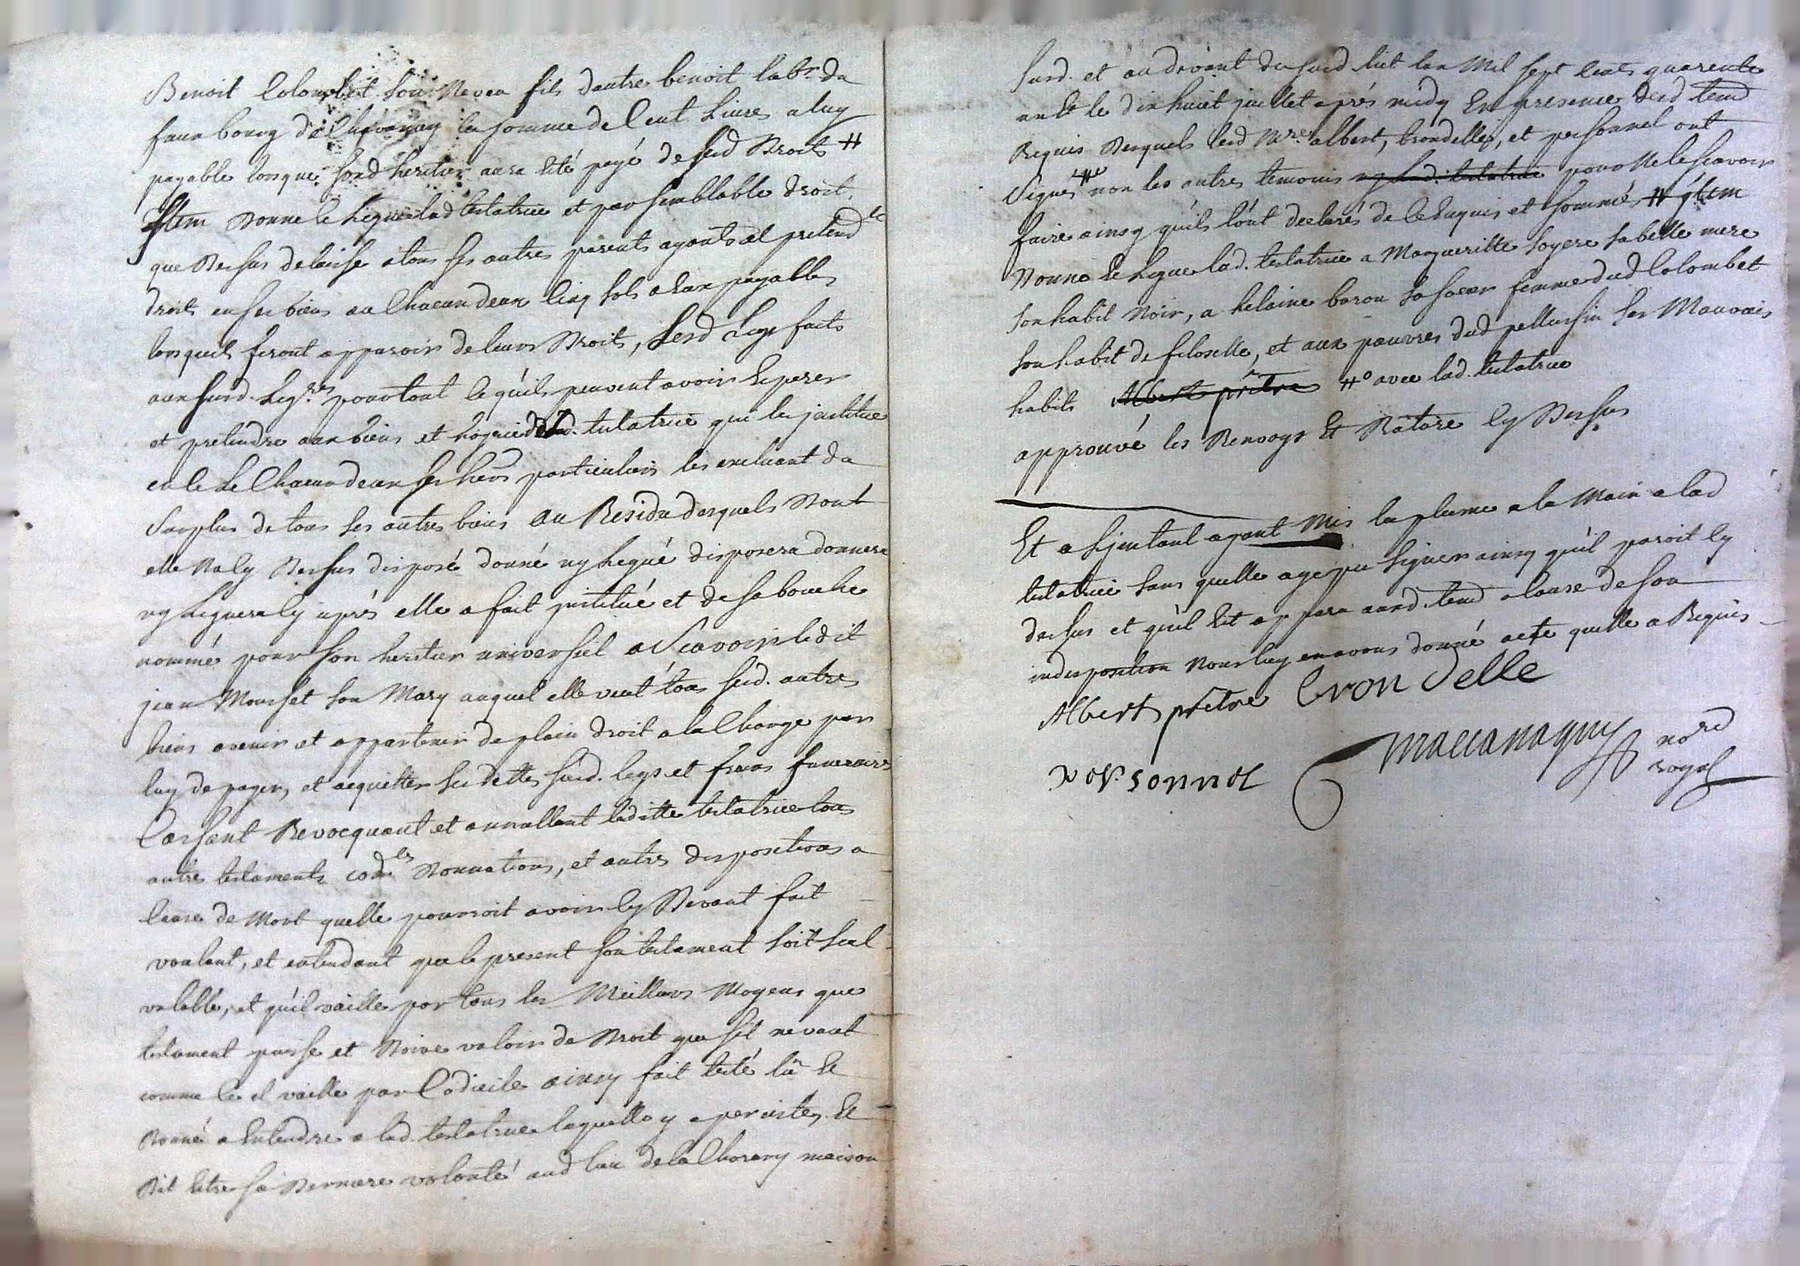 Benoit Colombet son Neveu fils dautre benoit lab.r du
faux bourg de Chavanay la somme de Cent Livres a luy
payable lorsque sond heritier aura Eté payé de sesd Droits #
Item Donne et Legue lad testatrice et par semblable droit
que Dessus delaisse a tous ses autres parents ayants et pretend.ts
droits en ses biens au Chacun deux Cinq sols a Eux payables
lorsquils feront apparoir de leurs Droits, Lesd Legs faits
aux susd. Leg.res pour tout ce quils peuvent avoir Esperer
et pretendre aux biens et hoyrie de lad. testatrice qui les jnstitue
en ce Le Chacun deux ses hers particuliers les excluant du
Surplus de tous ses autres biens Au Residu desquels Dont
elle Na Cy Dessus disposé donné ny Legué disposera donnera
ny Leguera Cy après elle a fait jnstitué et de sa bouche
nommé pour son heritier universel a Scavoir ledit
jean Mousset son Mary auquel elle veut tous sesd. autres
biens avenir et appartenir de plain droit a la Charge par
luy de payer, et acquitter ses dettes susd. legs et frais funeraires
Cassant Revocquant et annullant laditte testatrice tous
autres testaments cod.les Donnations, et autres dispositions a
Cause de Mort quelle pourroit avoir Cy Devant fait
voulant, et entendant que le present son testament soit seul
valable, et quil vaille par tous les Meilleurs Moyens que
testament puisse et Doive valoir de Droit que sil ne vaut
comme Ce il vaille par Codicile ainsy fait testé lû Et
Donné a Entendre a lad. testatrice laquelle y a percisté, Et
Dit Etre sa Derniere volonté aud lieu de la Chorery maison
susd. et au devant du susd. lit Lan Mil sept Cents quarente
un Et le dix huit juillet après midy En presence desd. tem.d
Requis Desquels lesd M.re albert, brondelle, et personnel ont
Signés # non les autres temoins ny lad. testatrice pour Ne le scavoir
faire ainsy quils lont declarés de ce Enquis et sommés # jtem
Donne Et Legue lad. testatrice a Margueritte Soyere sa belle mere
son habit Noir, a helaine baron sa soeur femme dud Colombet
son habit de filoselle, et aux pauvres dud pellussin ses Mauvais
habits Albert prêtre #o avec lad. testatrice
approuvé les Renvoys Et Rature Cy Dessus
Et a Linstant ayant Mis la plume a la Main a lad
testatrice sans quelle aye pû Signer ainsy quil paroit Cy
dessus et quil Est apparu auxd. temd a Cause de son
indisposition Nous luy en avons donné acte quelle a Requis
Albert prêtre brondelle
personnel Maccanaguy nord
royal